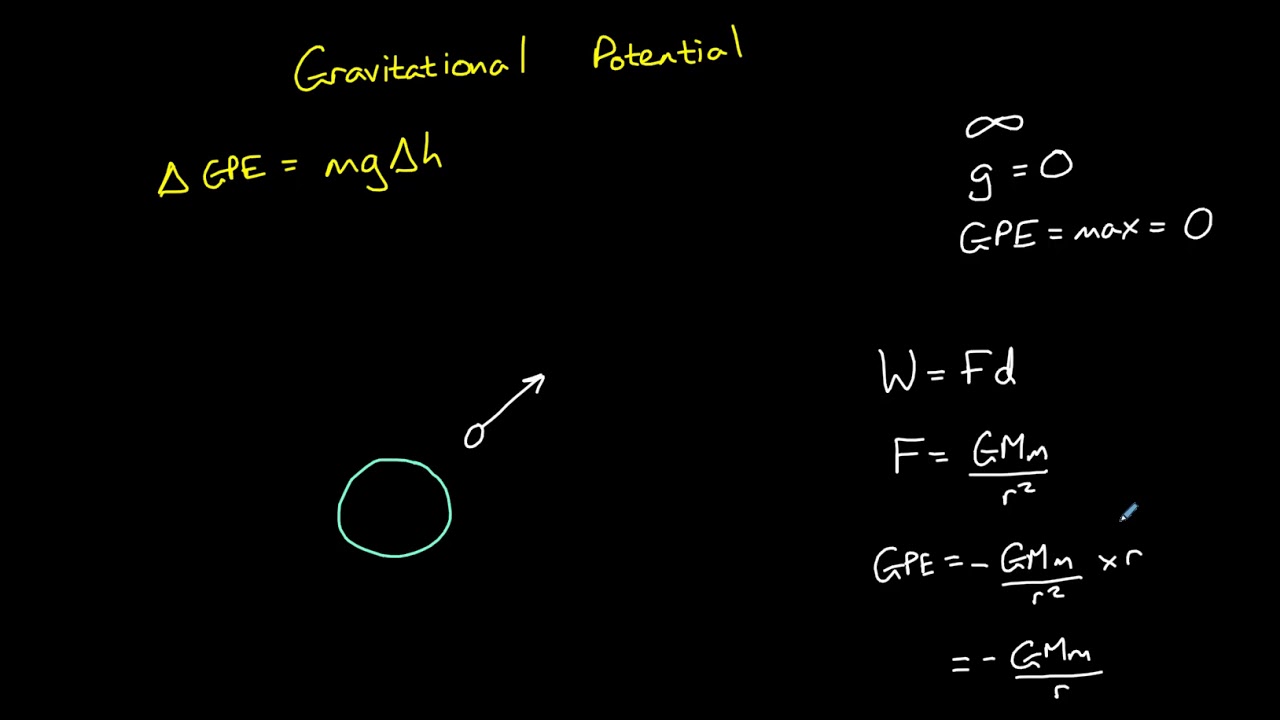 Gravitational Potential
Δ GPE = mgΔh
∞
g = 0
GPE = max = 0
W = Fd
F = GMm / r²
GPE = - GMm / r² × r
= - GMm / r